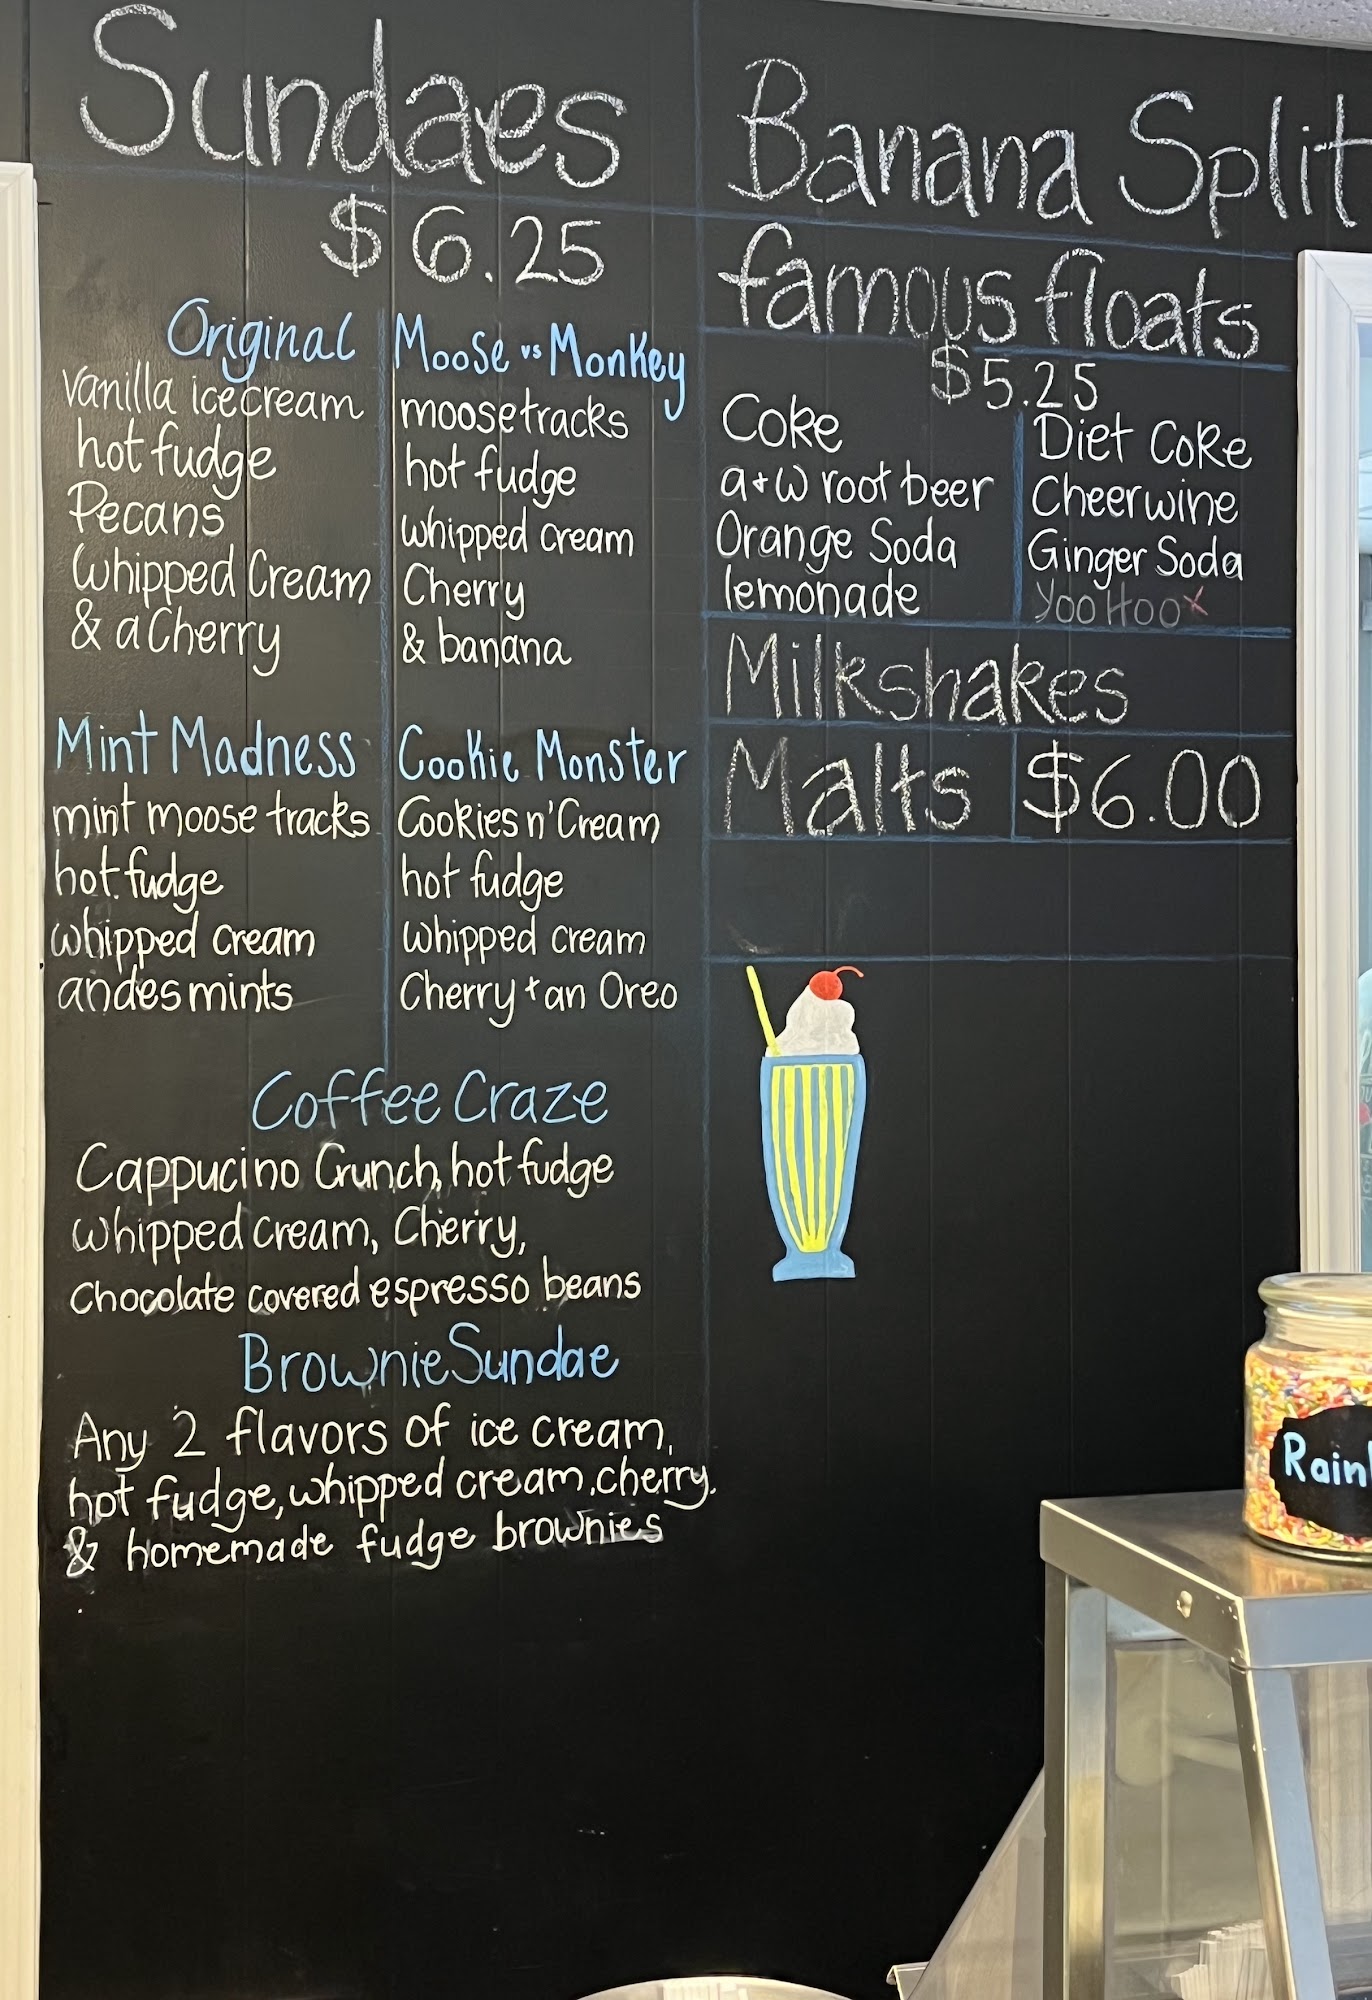 Sundaes
$6.25
Original
Vanilla icecream
hot fudge
Pecans
Whipped Cream
& a Cherry
Moose vs Monkey
moosetracks
hot fudge
whipped cream
Cherry
& banana
Mint Madness
mint moose tracks
hot fudge
whipped cream
andes mints
Cookie Monster
Cookies n' Cream
hot fudge
whipped cream
Cherry + an Oreo
Coffee Craze
Cappucino Crunch, hot fudge
whipped cream, Cherry,
Chocolate covered espresso beans
Brownie Sundae
Any 2 flavors of ice cream,
hot fudge, whipped cream, cherry.
& homemade fudge brownies
Banana Split
famous floats
$5.25
Coke
a+w root beer
Orange Soda
lemonade
Diet Coke
Cheerwine
Ginger Soda
YooHoo x
Milkshakes
Malts $6.00